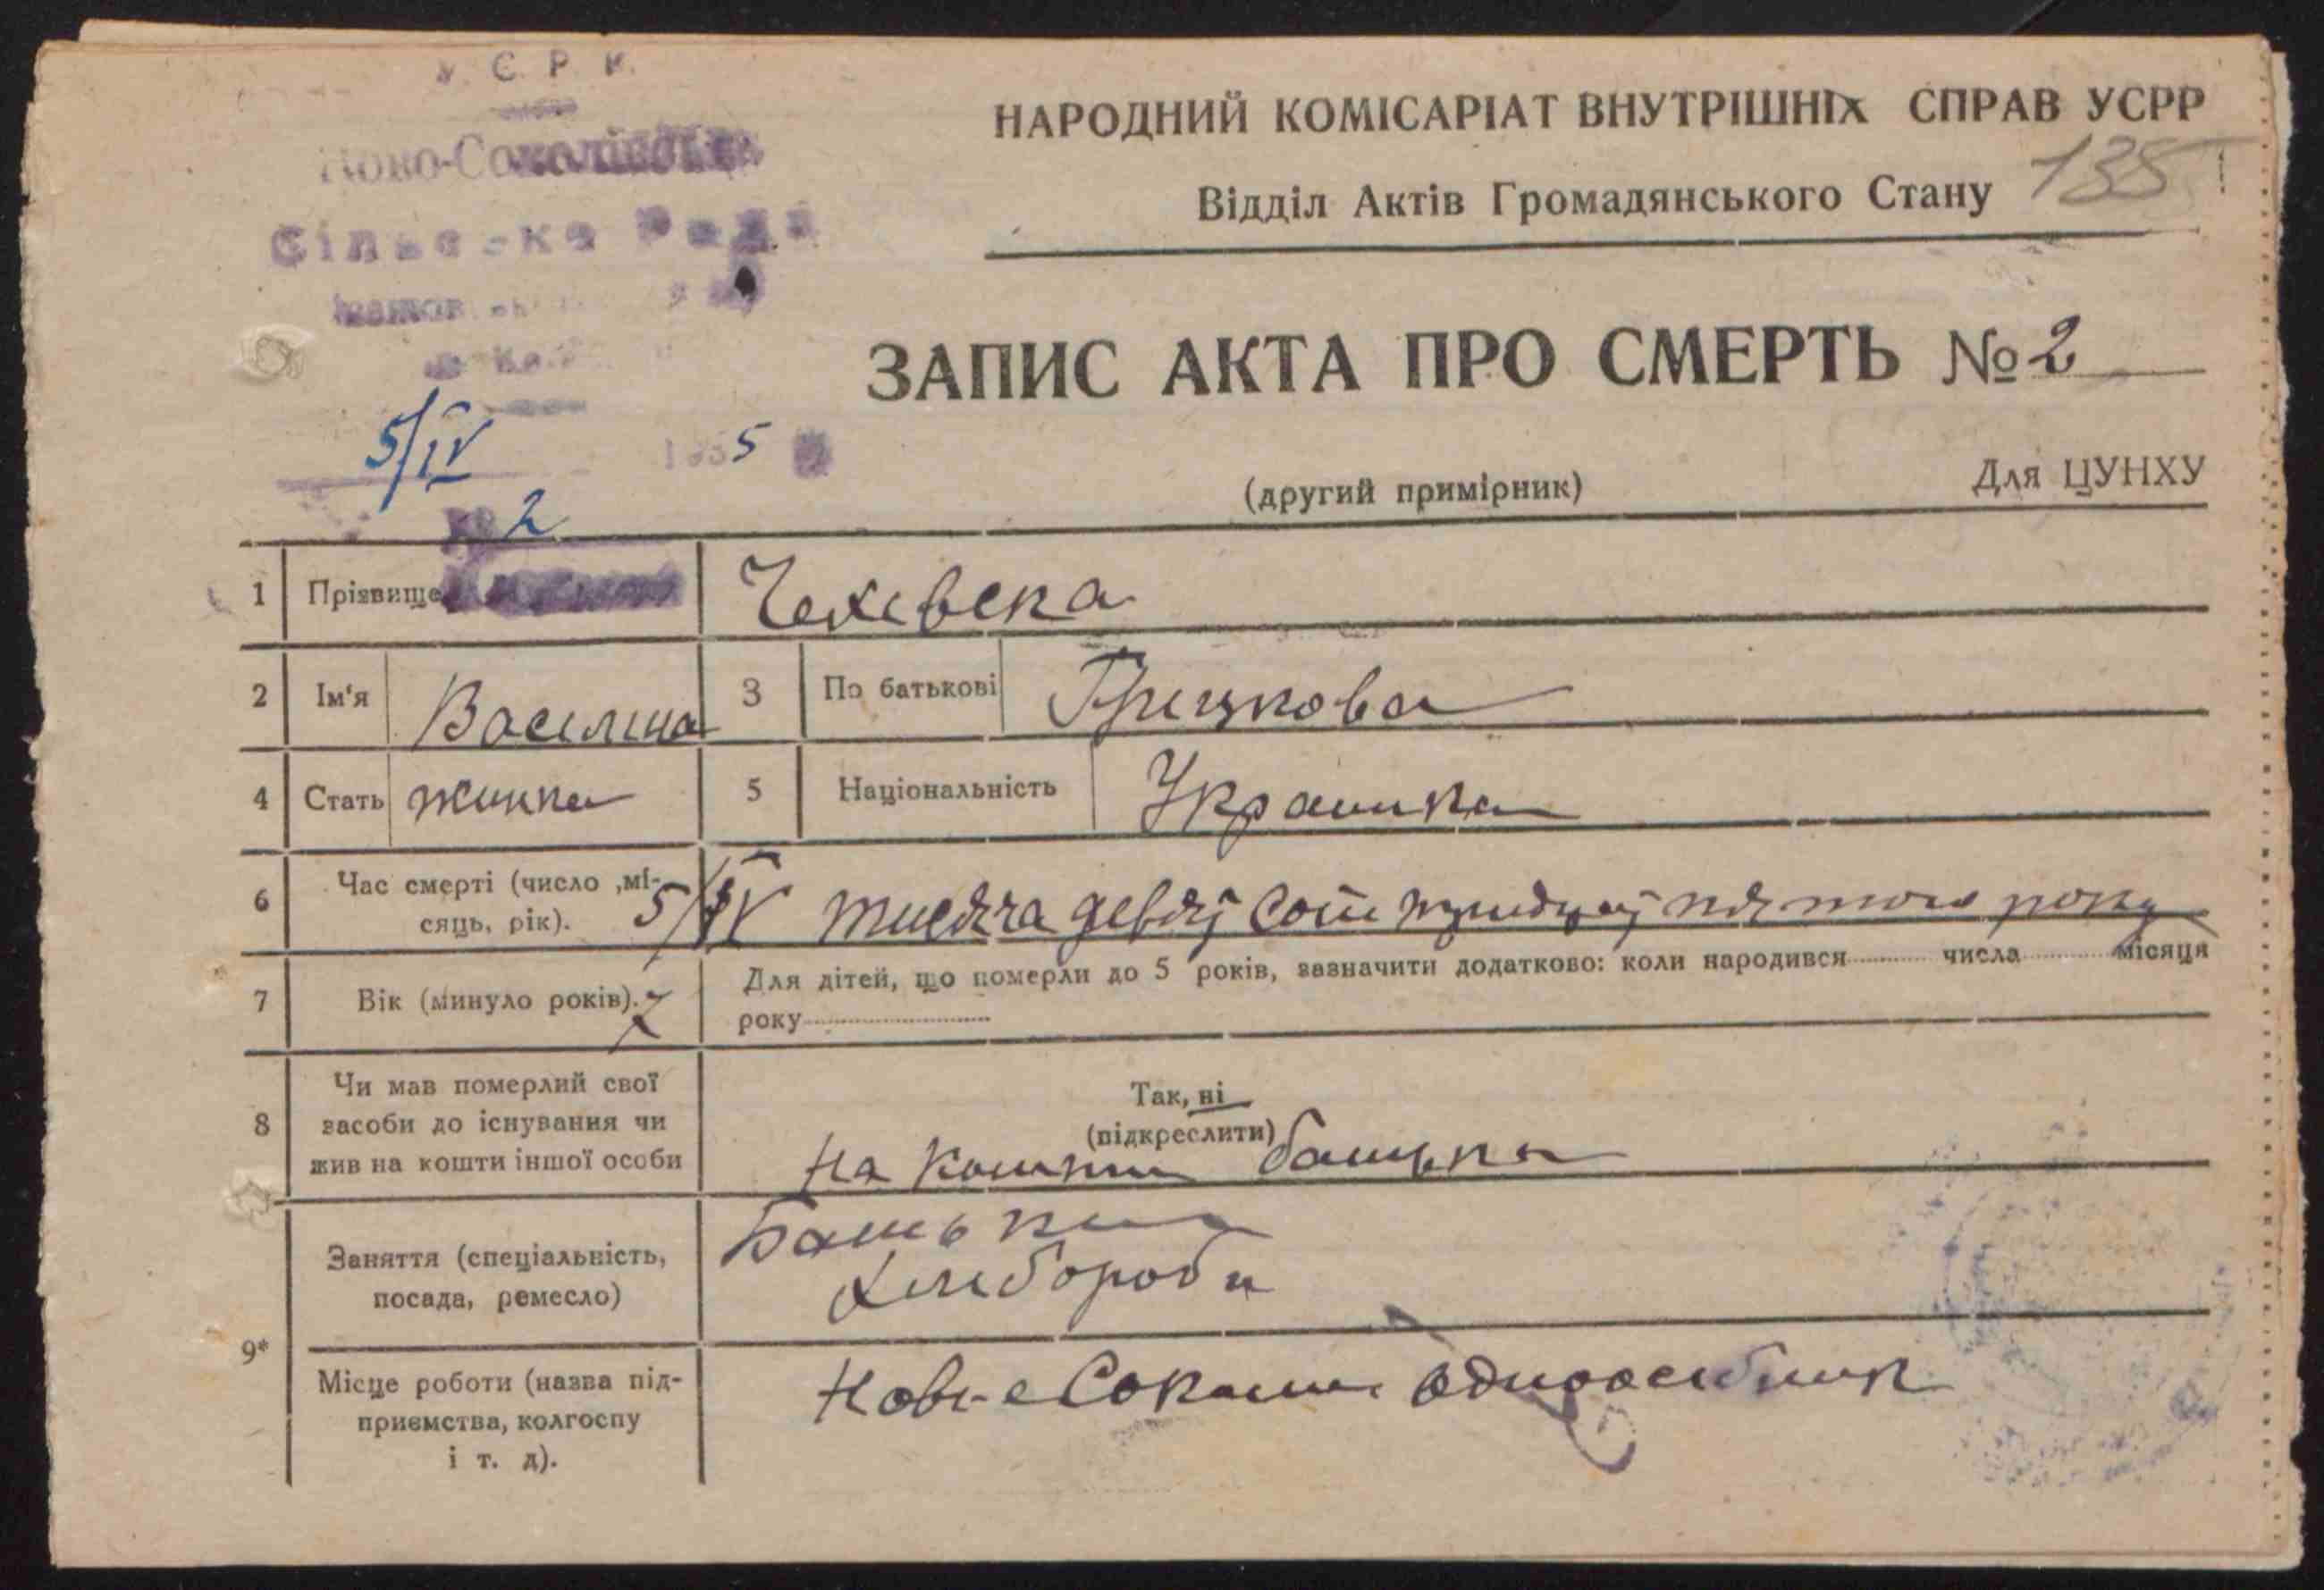 У. С. Р. Р.
Ново-Соколівська
Сільська Рада
НАРОДНИЙ КОМІСАРІАТ ВНУТРІШНІХ СПРАВ УСРР
Відділ Актів Громадянського Стану
135
ЗАПИС АКТА ПРО СМЕРТЬ №2
5/IV 1935
№ 2
(другий примірник)
Для ЦУНХУ
1 Прізвище Чехевска
2 Ім'я Василина 3 По батькові Грицкова
4 Стать жинка 5 Національність Украинка
6 Час смерті (число ,мі-
сяць, рік). 5/IV тисяча девяј сот тридцяј пятого року
7 Вік (минуло років). 7
Для дітей, що померли до 5 років, зазначити додатково: коли народився числа місяця
року
8 Чи мав померлий свої
засоби до існування чи
жив на кошти іншої особи
Так, ні
(підкреслити)
На кошти батька
9*
Заняття (спеціальність,
посада, ремесло)
Батьки
хлибороби
Місце роботи (назва під-
приємства, колгоспу
і т. д).
одноосибник